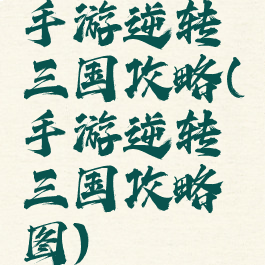 手游逆转
三国攻略(
手游逆转
三国攻略
图)